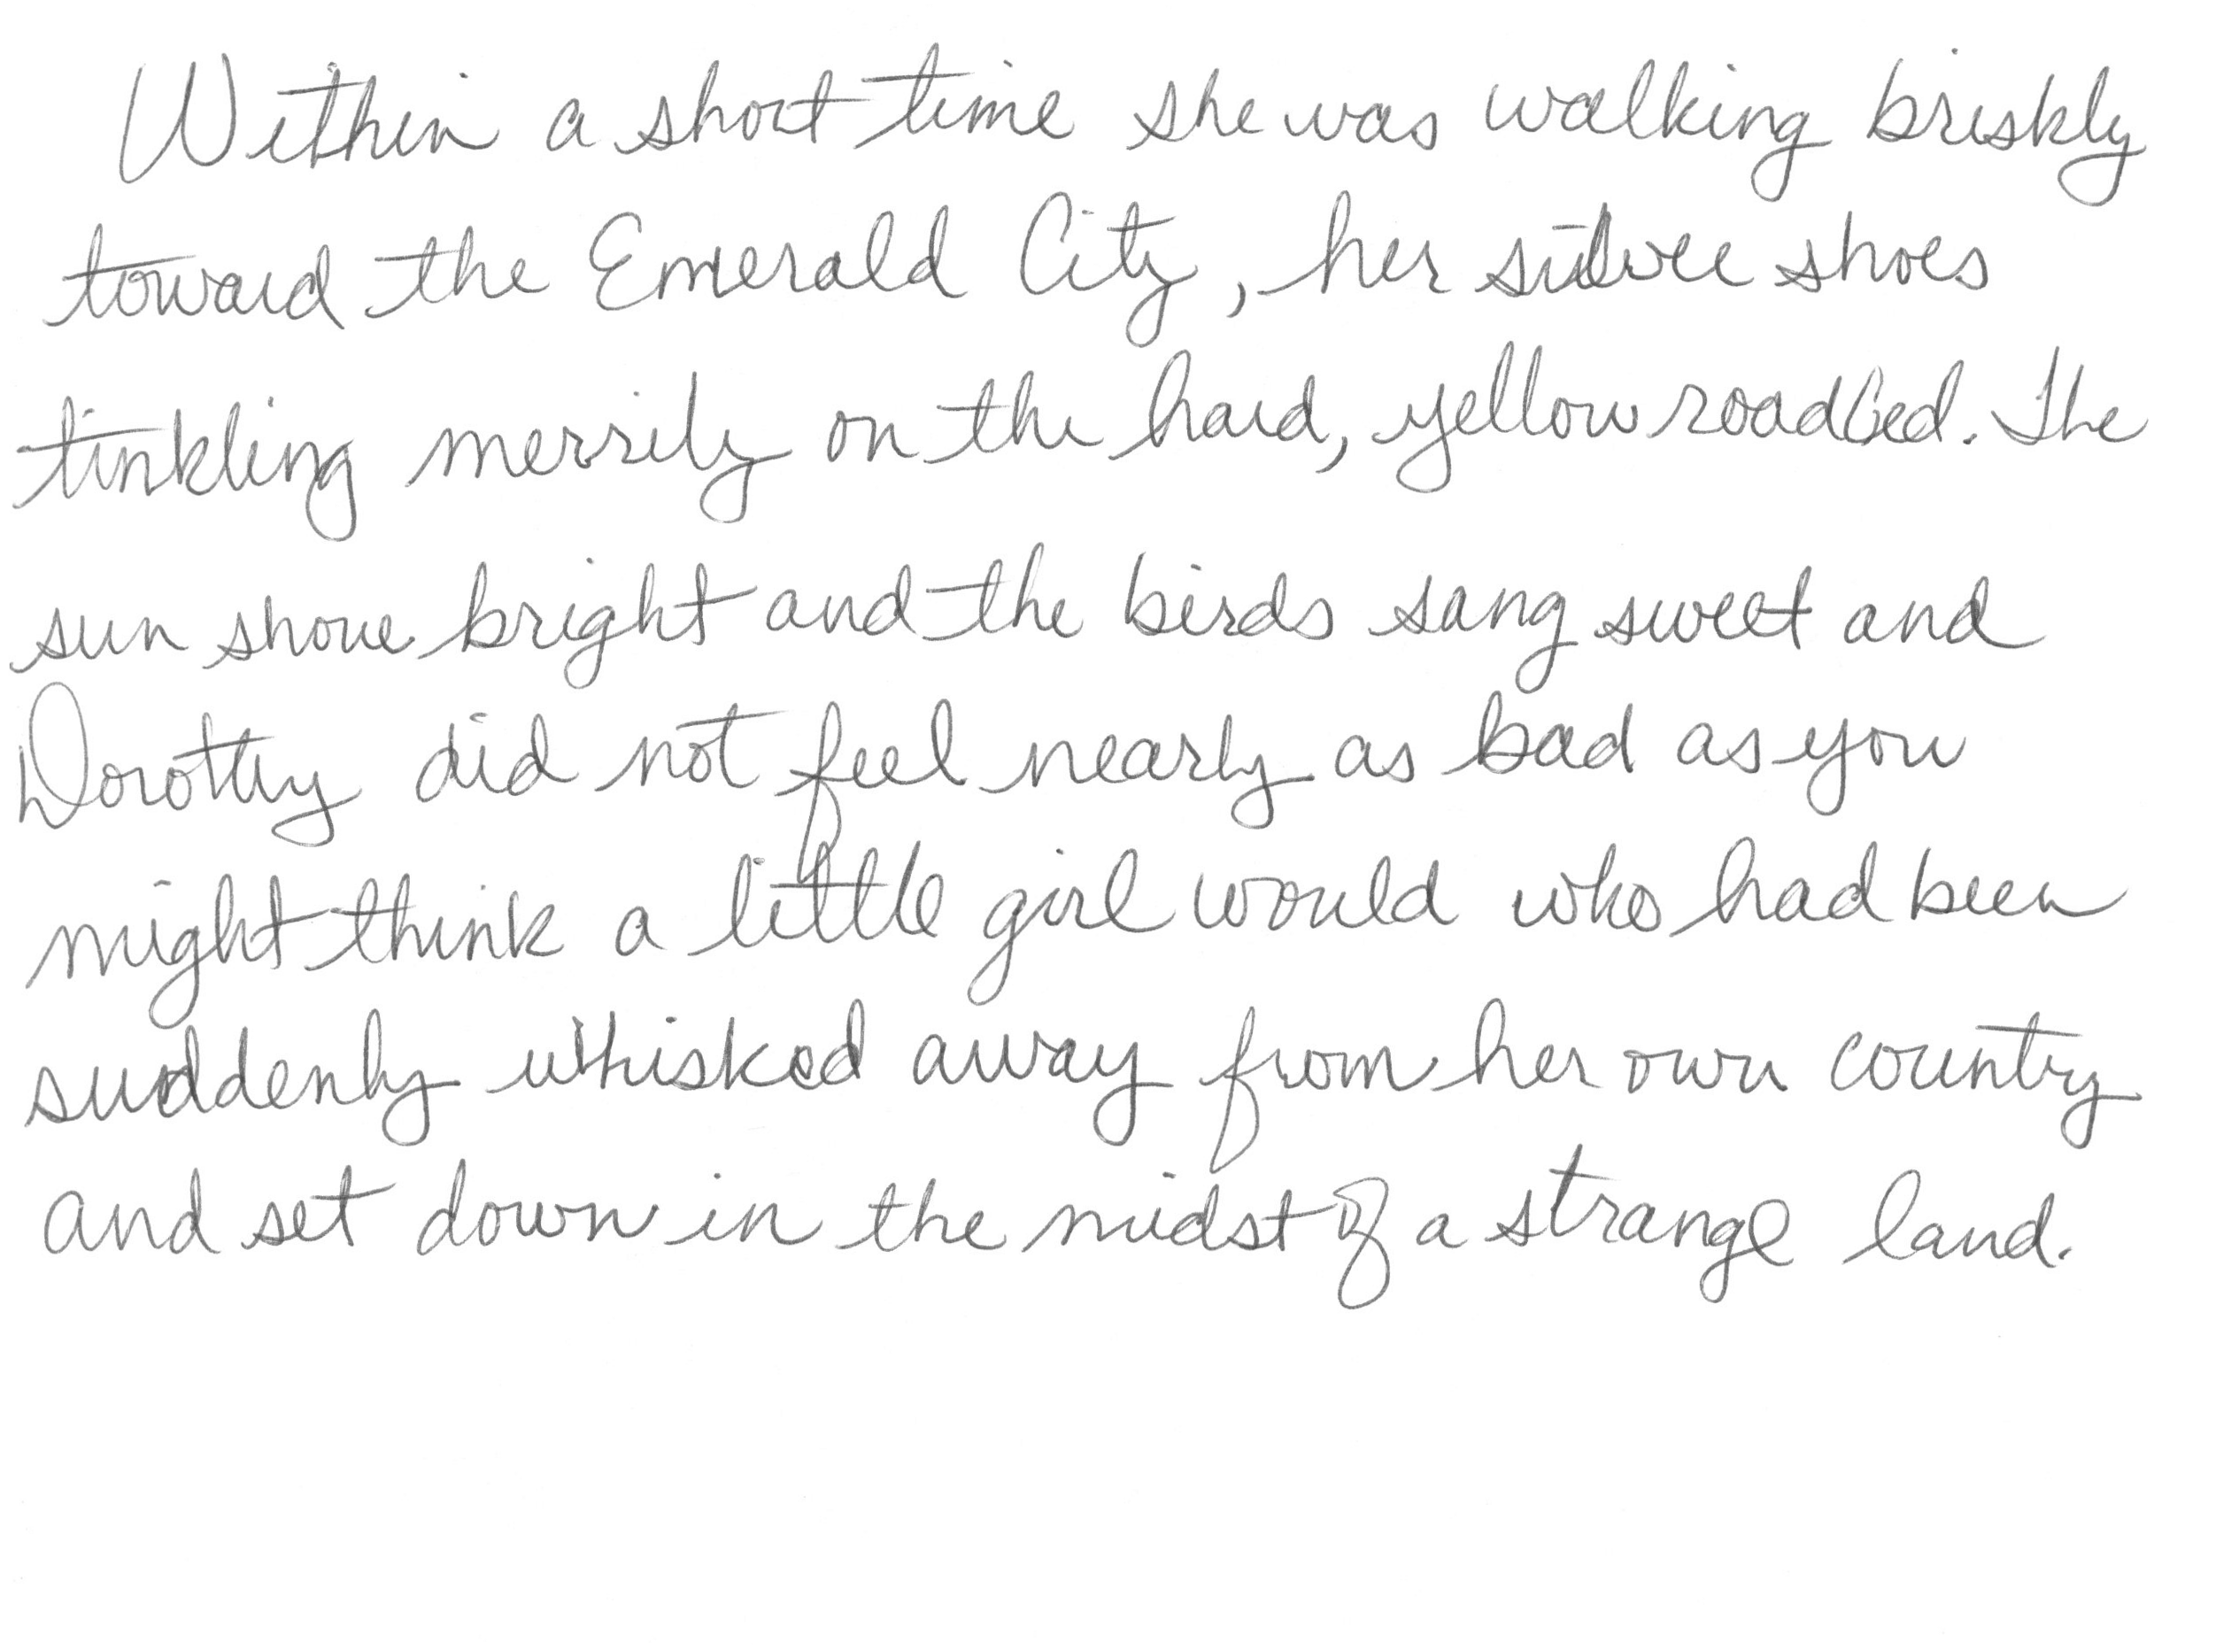 Within a short time she was walking briskly
toward the Emerald City, her silver shoes
tinkling merrily on the hard, yellow roadbed. The
sun shone bright and the birds sang sweet and
Dorothy did not feel nearly as bad as you
might think a little girl would who had been
suddenly whisked away from her own country
and set down in the midst of a strange land.